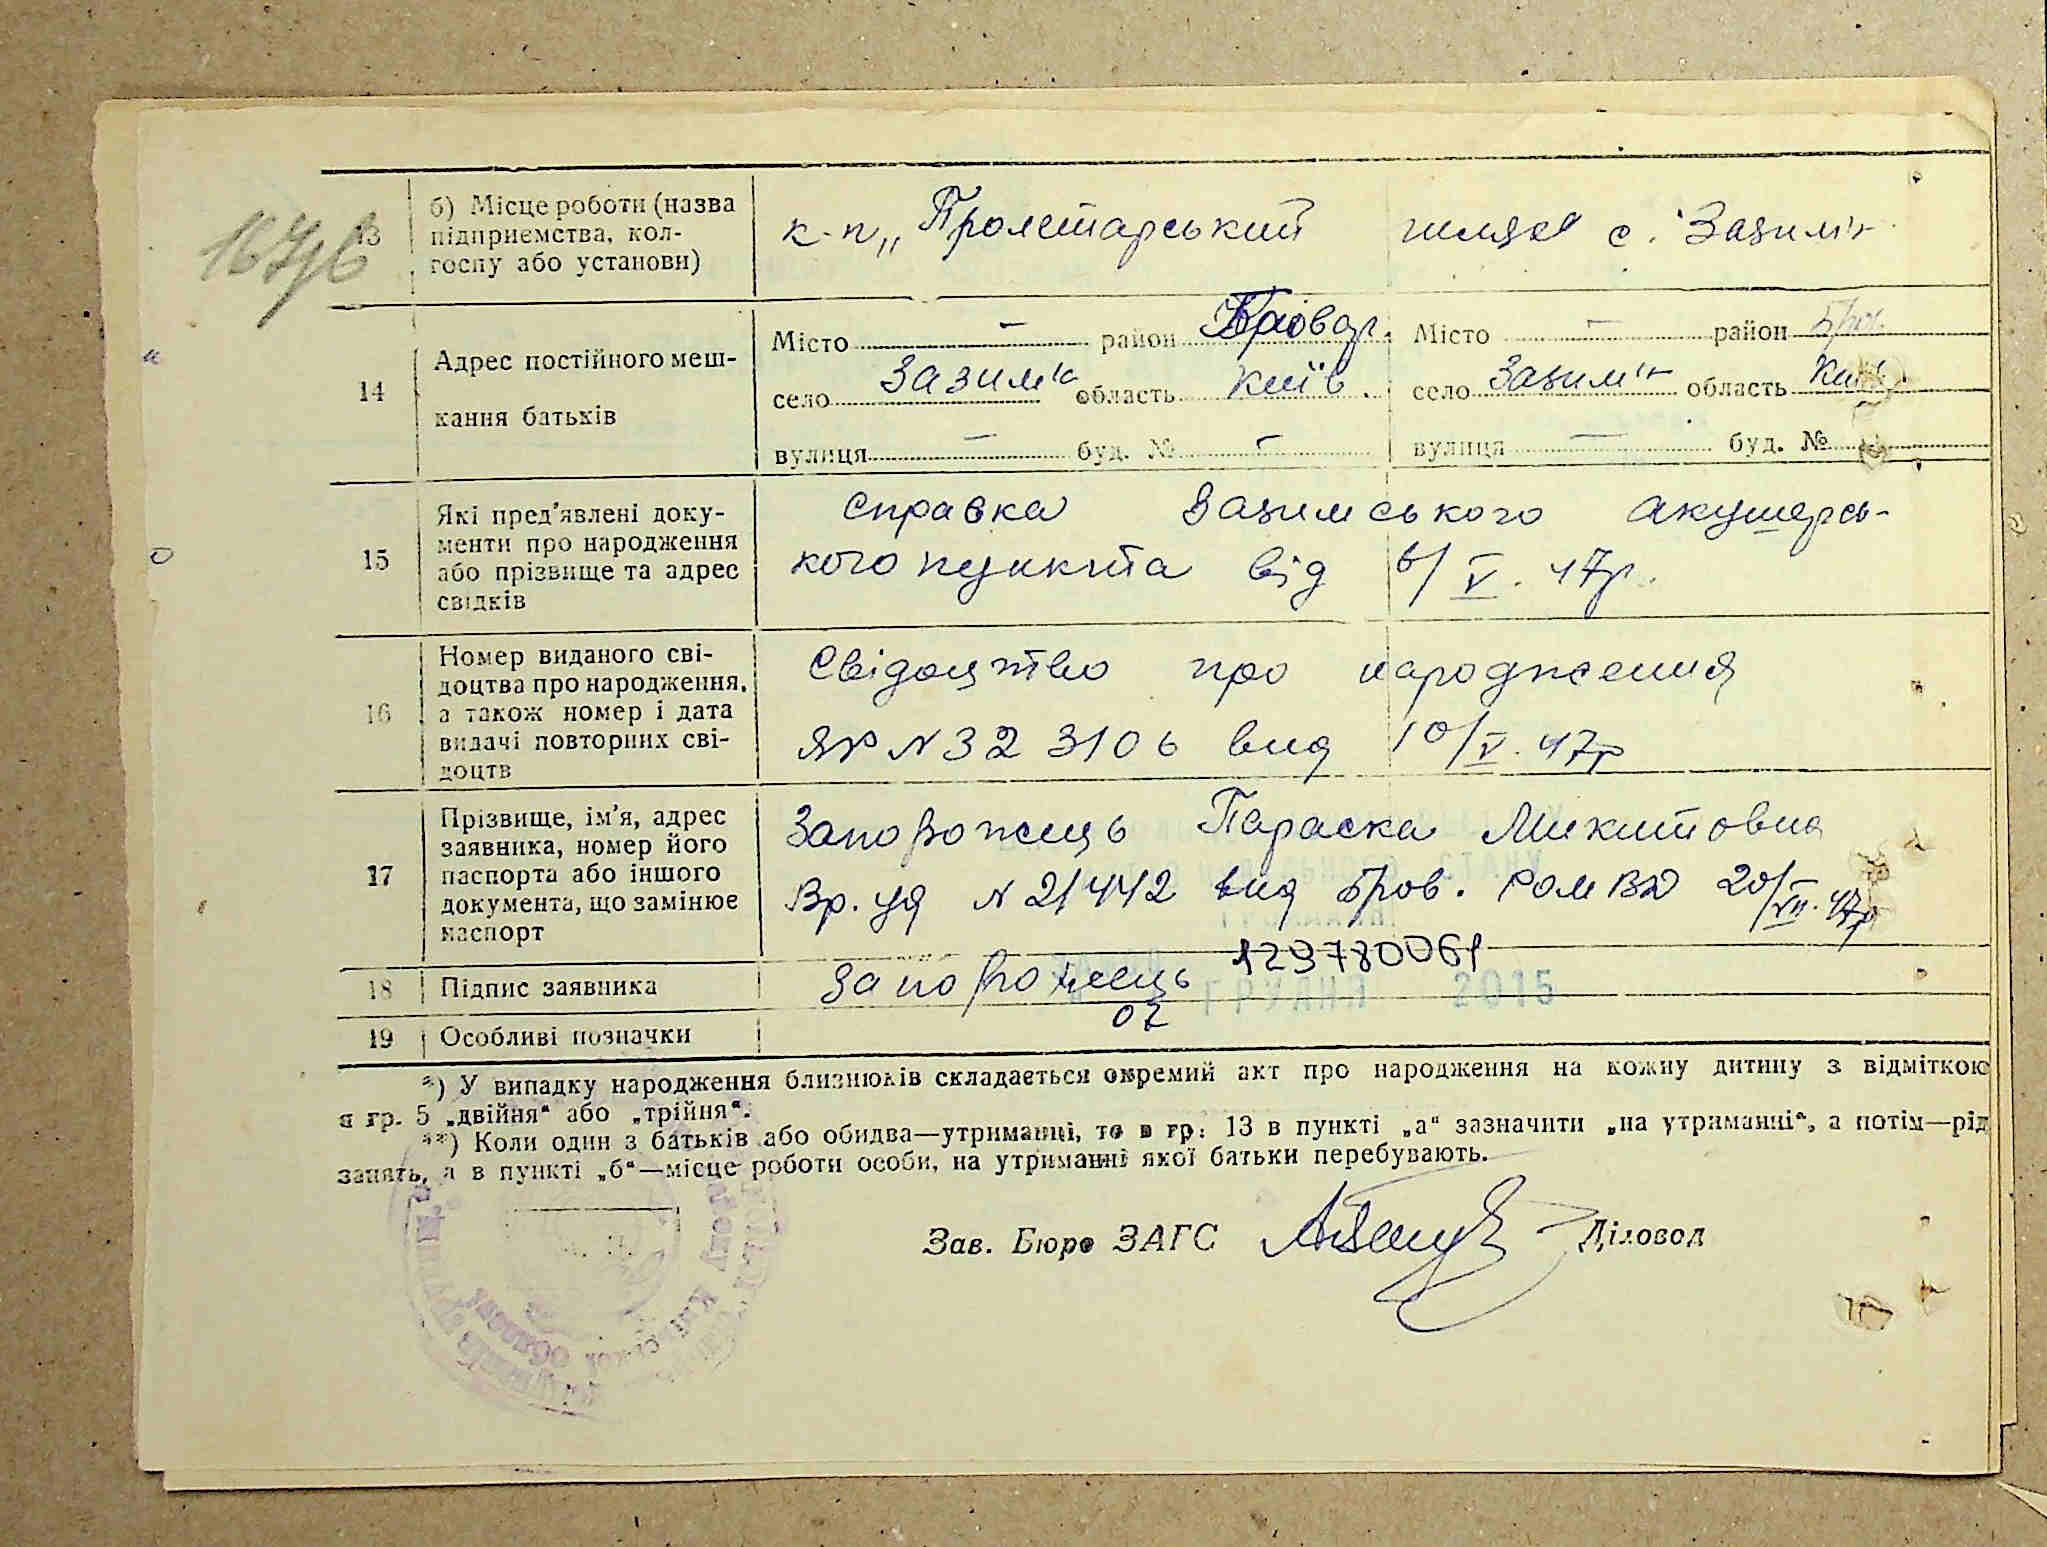 167зв
13 б) Місце роботи (назва підприємства, колгоспу або установи) к-п „Пролетарський шлях" с. Зазим'я
14 Адрес постійного мешкання батьків
Місто — район Бровар. Місто — район Бров.
село Зазим'я область Київ. село Зазим'я область Київ.
вулиця — буд. № — вулиця — буд. №
15 Які пред'явлені документи про народження або прізвище та адрес свідків
Справка Зазимського акушерсь-
кого пункта від 6/V. 47р.
16 Номер виданого свідоцтва про народження, а також номер і дата видачі повторних свідоцтв
Свідоцтво про народження
ЯР N 32 3106 вид 10/V. 47р
17 Прізвище, ім'я, адрес заявника, номер його паспорта або іншого документа, що замінює паспорт
Запорожець Параска Микитовна
Вр. уд N 21442 вид Бров. РОМВД 20/VII. 47р
129780061
18 Підпис заявника Запорожець
ГРУДНЯ 2015
07
19 Особливі позначки
*) У випадку народження близнюків складається окремий акт про народження на кожну дитину з відміткою
в гр. 5 „двійня" або „трійня".
**) Коли один з батьків або обидва—утриманці, то в гр. 13 в пункті „а" зазначити „на утриманні", а потім—рід
занять, а в пункті „б"—місце роботи особи, на утриманні якої батьки перебувають.
Зав. Бюро ЗАГС Діловод